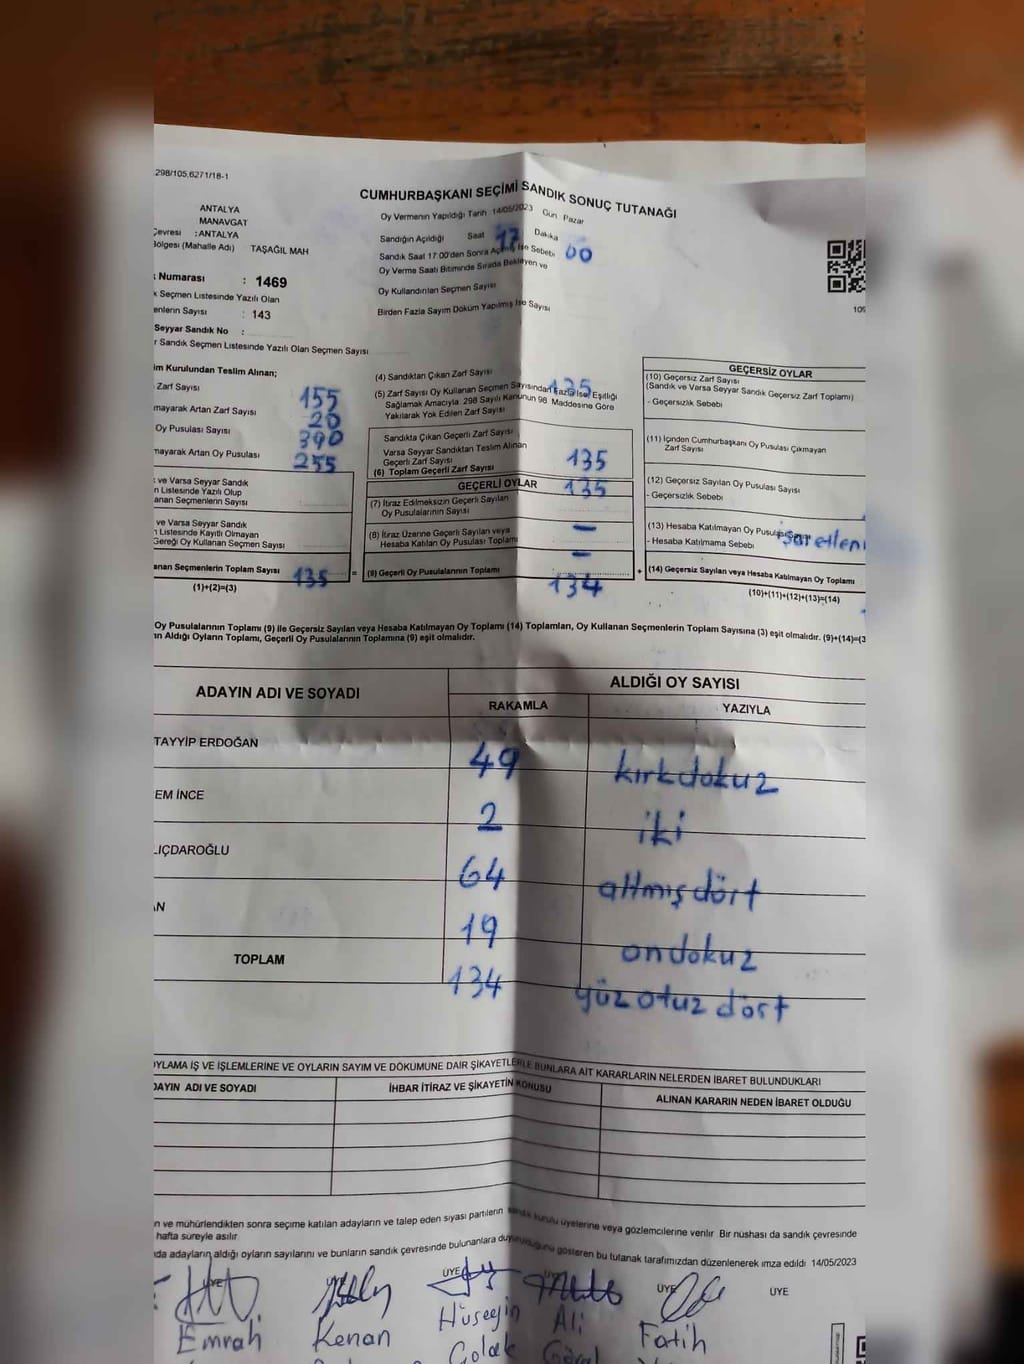 298/105,6271/18-1
CUMHURBAŞKANI SEÇİMİ SANDIK SONUÇ TUTANAĞI
ANTALYA
MANAVGAT
Çevresi : ANTALYA
Bölgesi (Mahalle Adı) TAŞAĞIL MAH
Numarası : 1469
Seçmen Listesinde Yazılı Olan
Sayısı : 143
Seyyar Sandık No :
Sandık Seçmen Listesinde Yazılı Olan Seçmen Sayısı
Oy Vermenin Yapıldığı Tarih 14/05/2023 Gün Pazar
Sandığın Açıldığı Saat 17 Dakika 00
Sandık Saat 17:00'den Sonra Açılmış İse Sebebi
Oy Verme Saati Bitiminde Sırada Bekleyen ve
Oy Kullandırılan Seçmen Sayısı
Birden Fazla Sayım Döküm Yapılmış İse Sayısı
Kurulundan Teslim Alınan;
Zarf Sayısı 155
Artan Zarf Sayısı 20
Oy Pusulası Sayısı 390
Artan Oy Pusulası 255
ve Varsa Seyyar Sandık
Listesinde Yazılı Olup
Seçmenlerin Sayısı
ve Varsa Seyyar Sandık
Listesinde Kayıtlı Olmayan
Gereği Oy Kullanan Seçmen Sayısı
Seçmenlerin Toplam Sayısı 135
(1)+(2)=(3)
(4) Sandıktan Çıkan Zarf Sayısı 135
(5) Zarf Sayısı Oy Kullanan Seçmen Sayısından Fazla İse, Eşitliği
Sağlamak Amacıyla, 298 Sayılı Kanunun 98. Maddesine Göre
Yakılarak Yok Edilen Zarf Sayısı
Sandıkta Çıkan Geçerli Zarf Sayısı
Varsa Seyyar Sandıktan Teslim Alınan
Geçerli Zarf Sayısı
(6) Toplam Geçerli Zarf Sayısı 135
GEÇERLİ OYLAR 135
(7) İtiraz Edilmeksizin Geçerli Sayılan
Oy Pusulalarının Sayısı
(8) İtiraz Üzerine Geçerli Sayılan veya -
Hesaba Katılan Oy Pusulası Toplamı
-
= (9) Geçerli Oy Pusulalarının Toplamı +
134
GEÇERSİZ OYLAR
(10) Geçersiz Zarf Sayısı
(Sandık ve Varsa Seyyar Sandık Geçersiz Zarf Toplamı)
- Geçersizlik Sebebi
(11) İçinden Cumhurbaşkanı Oy Pusulası Çıkmayan
Zarf Sayısı
(12) Geçersiz Sayılan Oy Pusulası Sayısı
- Geçersizlik Sebebi
(13) Hesaba Katılmayan Oy Pusulası Sayısı
- Hesaba Katılmama Sebebi
(14) Geçersiz Sayılan veya Hesaba Katılmayan Oy Toplamı
(10)+(11)+(12)+(13)=(14)
Oy Pusulalarının Toplamı (9) ile Geçersiz Sayılan veya Hesaba Katılmayan Oy Toplamı (14) Toplamları, Oy Kullanan Seçmenlerin Toplam Sayısına (3) eşit olmalıdır. (9)+(14)=(3
Aldığı Oyların Toplamı, Geçerli Oy Pusulalarının Toplamına (9) eşit olmalıdır.
ADAYIN ADI VE SOYADI ALDIĞI OY SAYISI
RAKAMLA YAZIYLA
TAYYİP ERDOĞAN 49 kırkdokuz
EM İNCE 2 iki
LIÇDAROĞLU 64 altmışdört
AN 19 ondokuz
TOPLAM 134 yüz otuz dört
OYLAMA İŞ VE İŞLEMLERİNE VE OYLARIN SAYIM VE DÖKÜMÜNE DAİR ŞİKAYETLERLE BUNLARA AİT KARARLARIN NELERDEN İBARET BULUNDUKLARI
ADI VE SOYADI İHBAR İTİRAZ VE ŞİKAYETİN KONUSU ALINAN KARARIN NEDEN İBARET OLDUĞU
ve mühürlendikten sonra seçime katılan adayların ve talep eden siyasi partilerin sandık kurulu üyelerine veya gözlemcilerine verilir. Bir nüshası da sandık çevresinde
hafta süreyle asılır.
adayların aldığı oyların sayılarını ve bunların sandık çevresinde bulunanlara duyurulduğunu gösteren bu tutanak tarafımızdan düzenlenerek imza edildi. 14/05/2023
ÜYE ÜYE ÜYE ÜYE
Emrah Kenan Hüseyin Ali Fatih